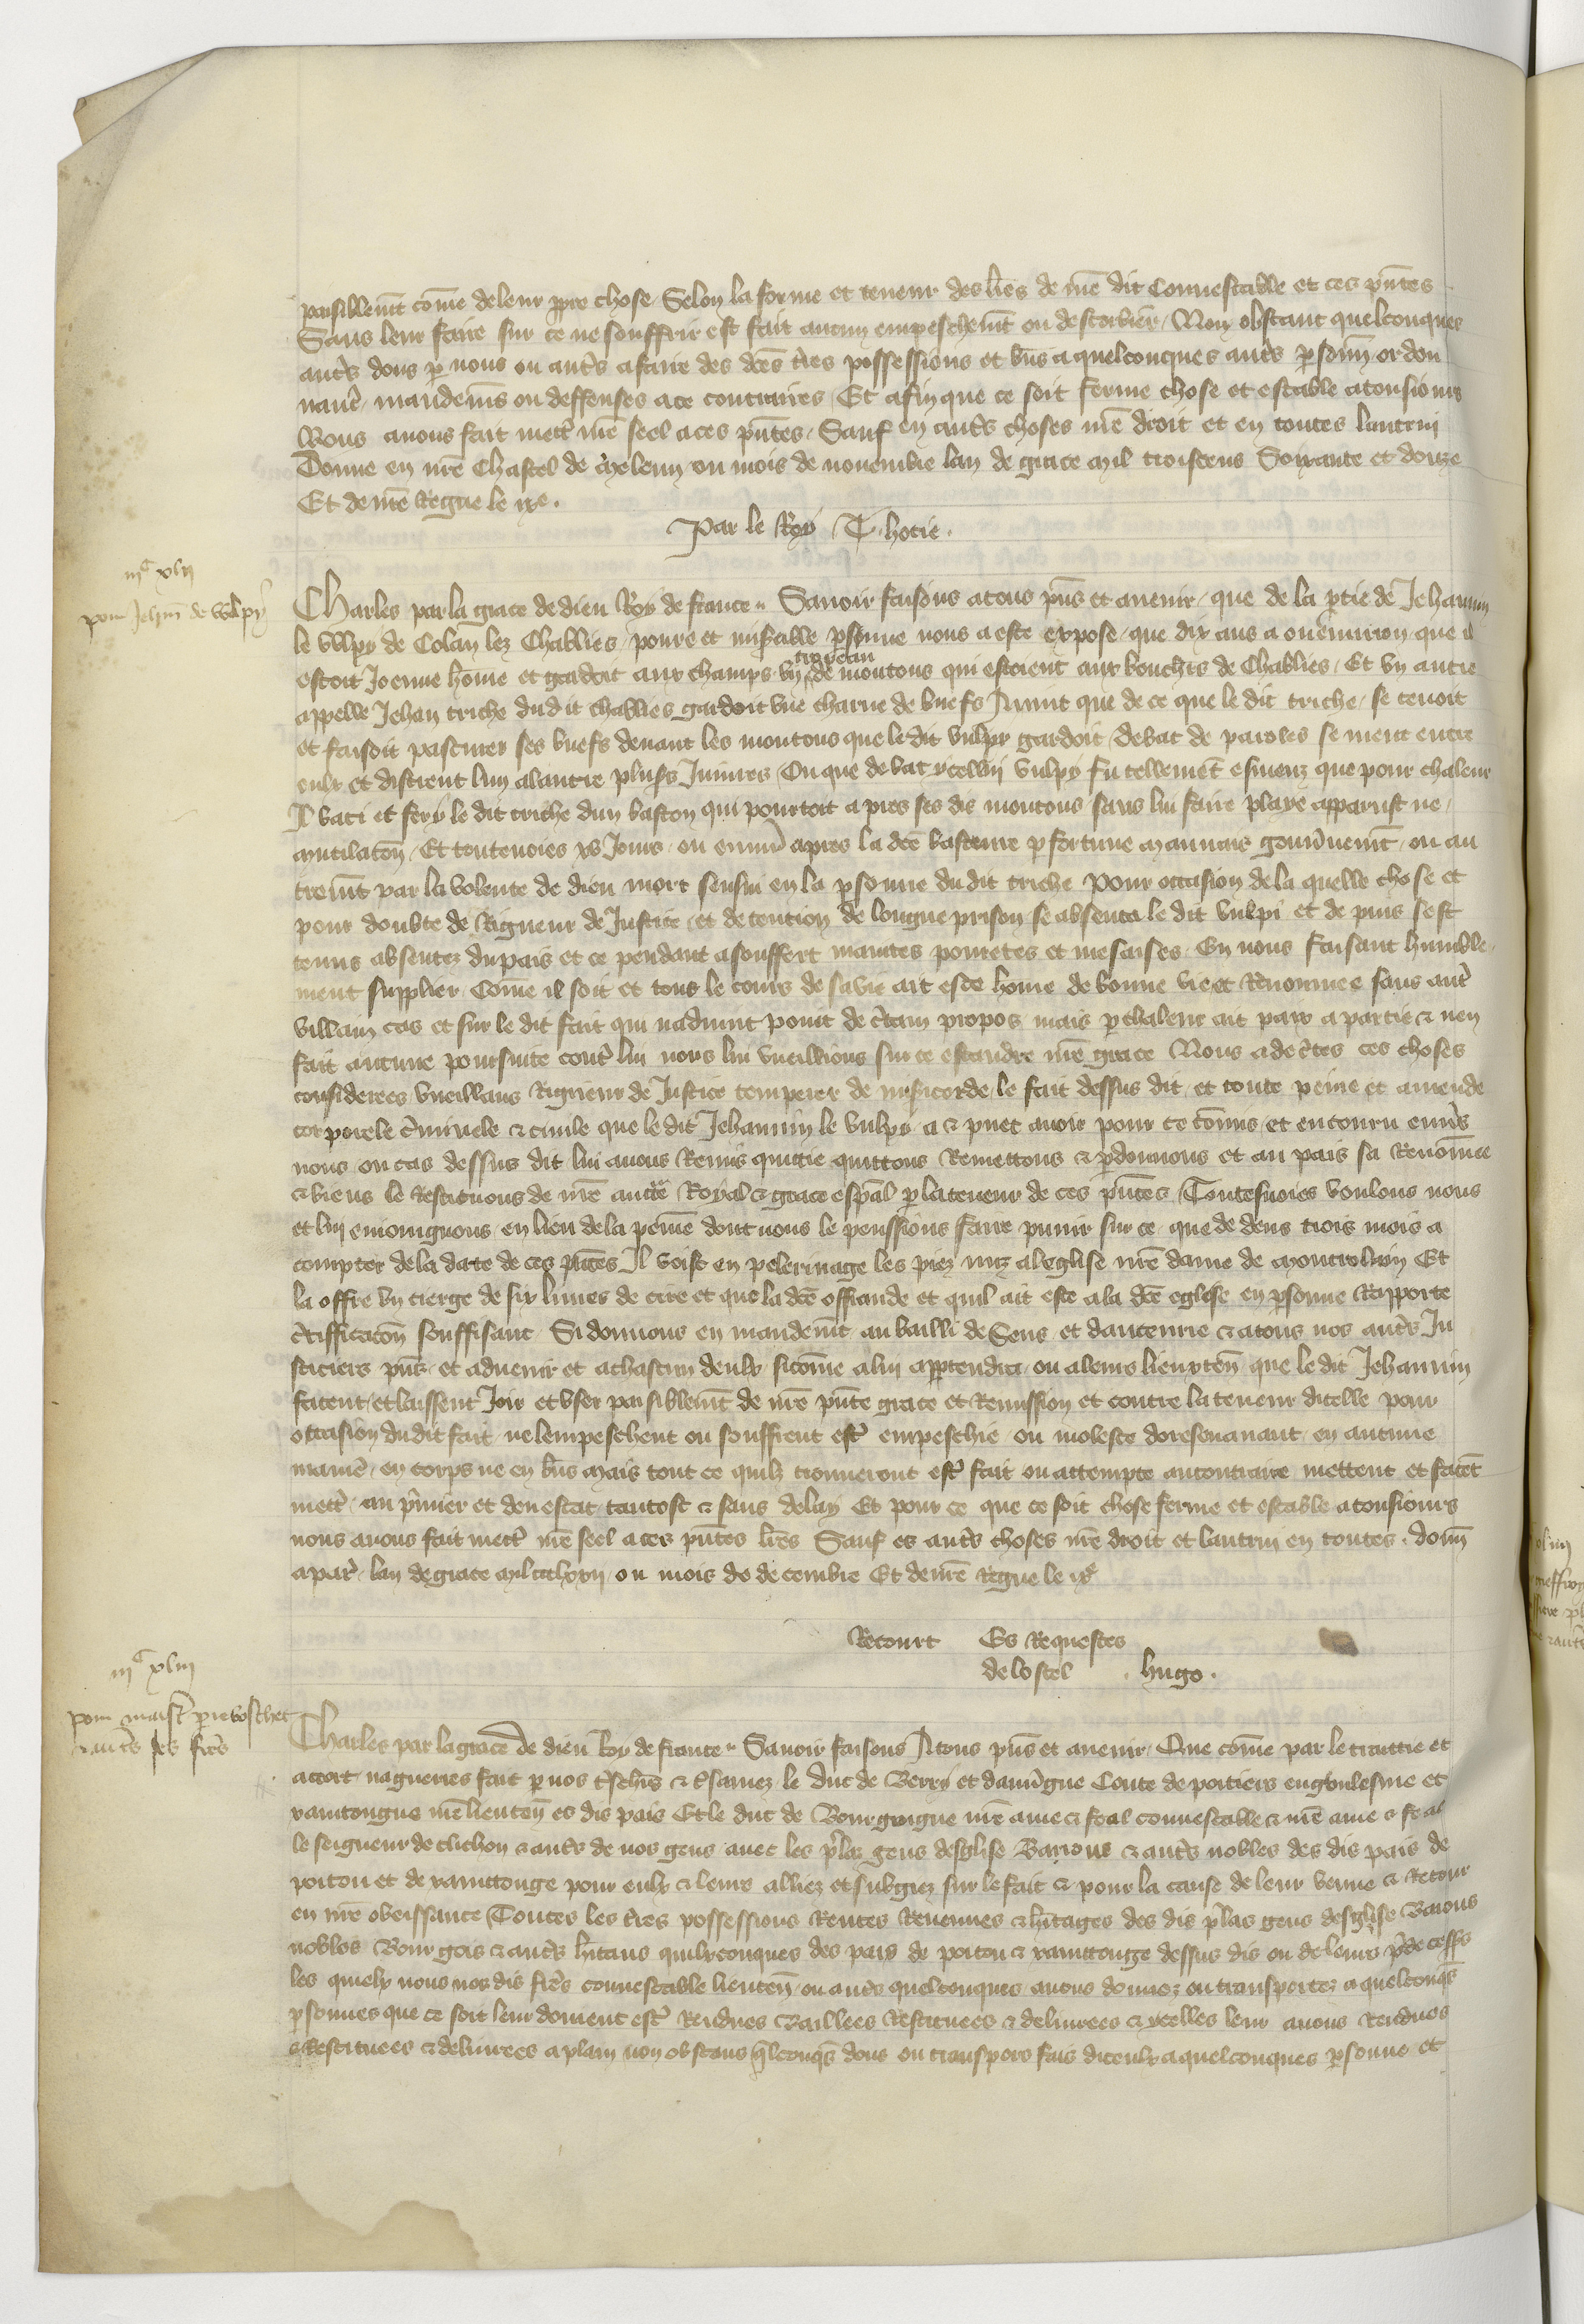 paisiblemt come de leur ppre chose Selon la forme et teneur des lres de nre dit Connestable et ces pntes
Sans leur faire sur ce ne souffrir est fait aucun empeschemt ou destorbier Non obstant quelconques
autrs dons p nous ou autrs a faire des dces tres possessions et bns a quelconques autrs psonn ordon
nanc mandems ou deffenses a ce contraires Et afin que ce soit ferme chose et estable a tousiours
Nous auons fait mettr nre seel a ces pntes Sauf en autrs choses nre droit et en toutes lautrui
Donne en nre Chastel de Meleun ou mois de nouembre lan de grace mil troiscens Soixante et douze
Et de nre Regne le ixe.
Par le Roy T. hocie.
iiic xlii
pour Jehin de vulpy
Charles par la grace de dieu Roy de france Sauoir faisons a tous pns et auenir que de la ptie de Jehannin
le vulpy de Colan lez Chablies poure et misable psonne nous a este expose que dix ans a ou enuiron que il
estoit Joenne home et gardoit aux champs vn troupeau de moutons qui estoient aux bouchrs de Chablies Et vn autre
appelle Jehan triche dudit chablies gardoit vne charue de buefs Auint que de ce que le dit triche se tenoit
et faisoit pasturer ses buefs deuant les moutons que le dit vulpy gardoit debat de paroles se ment entre
eulx et distrent lun a lautre plusrs Iniures Ou que debat ycellui vulpy fu tellemet esmeuz que pour chaleur
Il bati et fery le dit triche dun baston qui pourtoit apres ses dis moutons sans lui faire playe apparust ne
mutilacon Et touteuoies xv Jours ou enuiro apres la dce basteure p fortune mauuais gouunemt ou au
tremt par la volente de dieu mort sensui en la psonne dudit triche Pour occasion de la quelle chose et
pour doubte de Rigueur de Justice et detencion de longue prison se absenta le dit vulpi et depuis sest
tenus absentez du pais et ce pendant a souffert maintes pouretes et mesaises En nous faisant humble
ment supplier Come il soit et tout le cours de sa vie ait este home de bonne vie et Renommee sans autr
villain cas et sur le dit fait qui nadunt point de ctain propos mais p chaleur ait paix a partie & nen
fait aucune poursuite contr lui nous lui vueillions sur ce estandre nre grace Nous adectes ces choses
considerees vueillans Rigueur de Justice temperer de misicorde le fait dessus dit et toute peine et amende
corporele criminele & ciuile que le dit Jehannin le vulpy a & puet auoir pour ce comis et encouru enuers
nous ou cas dessus dit lui auons Remis quittie quittons Remettons & pdonnons et au pais sa Renommee
& biens le Restituons de nre aucte Royal & grace espal p la teneur de ces pntes Toutesuoies voulons nous
et lui enioingnons en lieu de la peine dont nous le peussions faire punir sur ce que dedens trois mois a
compter de la date de ces pntes Il voise en pelerinage les piez nuz a leglise nre dame de montroland Et
la offre vn cierge de six liures de cire et que la dce offrande et quil ait este a la dce eglise en psonne Rapporte
ctifficacon souffisant Si donnons en mandemt au bailli de Sens et dauceurre & a tous nos autrs Ju
sticiers pns et aduenir et a chascun deulx sicome a lui appartendra ou a leurs lieuxten que le dit Jehannin
facent et laissent Joir et vser paisiblemt de nre pnte grace et Remission et contre la teneur dicelle pour
occasion dudit fait ne lempeschent ou seuffrent estr empeschie ou moleste doresenauant en aucune
manie en corps ne en bns Mais tout ce quilz trouueront estr fait ou attempte au contraire mettent et facet
mettr au pmier et deu estat tantost & sans delay Et pour ce que ce soit chose ferme et estable a tousiours
nous auons fait mettr nre seel a ces pntes lres Sauf es autrs choses nre droit et lautrui en toutes. donn
a par lan de grace mil ccclxxii ou mois de decembre Et de nre Regne le ixe
Recourt Es Requestes
de lostel . hugo.
iiic xliii
pour maistr pierre boschet
& autrs ses frrs
Charles par la grace de dieu Roy de france Sauoir faisons A tous pns et auenir Que come par le traittie et
acort nagueires fait p nos trschrs & Esamez le duc de Berry et dauuigne Conte de poitiers engoulesme et
xainctongne nre lieuten es dis pais Et le duc de Bourgoigne nre ame & feal connestable & nre ame & feal
le seigneur de clichon & autrs de nos gens auec les prlaz gens desglise Barons & autrs nobles des dis pais de
poitou et de xainctonge pour eulx & leurs alliez et subgiez sur le fait & pour la cause de leur venue & Retour
en nre obeissance Toutes les tres possessions Rentes Reuenues & hitages des dis plas gens desglise Barons
nobles Bourgois & autrs hitans quilxconques des pais de poitou & xainctonge dessus dis ou de leurs pdecessrs
les quielx nous nos dis frrs connestable lieuten ou autrs quelconques auons donnez ou transportez a quelconqs
psonnes que ce soit leur doiuent estr Rendues Baillees Restituees & deliurees & ycelles leur auons Rendues
& Restituees & deliurees a plain non obstans qlconqs dons ou transpors fais diceulx a quelconques psonne et